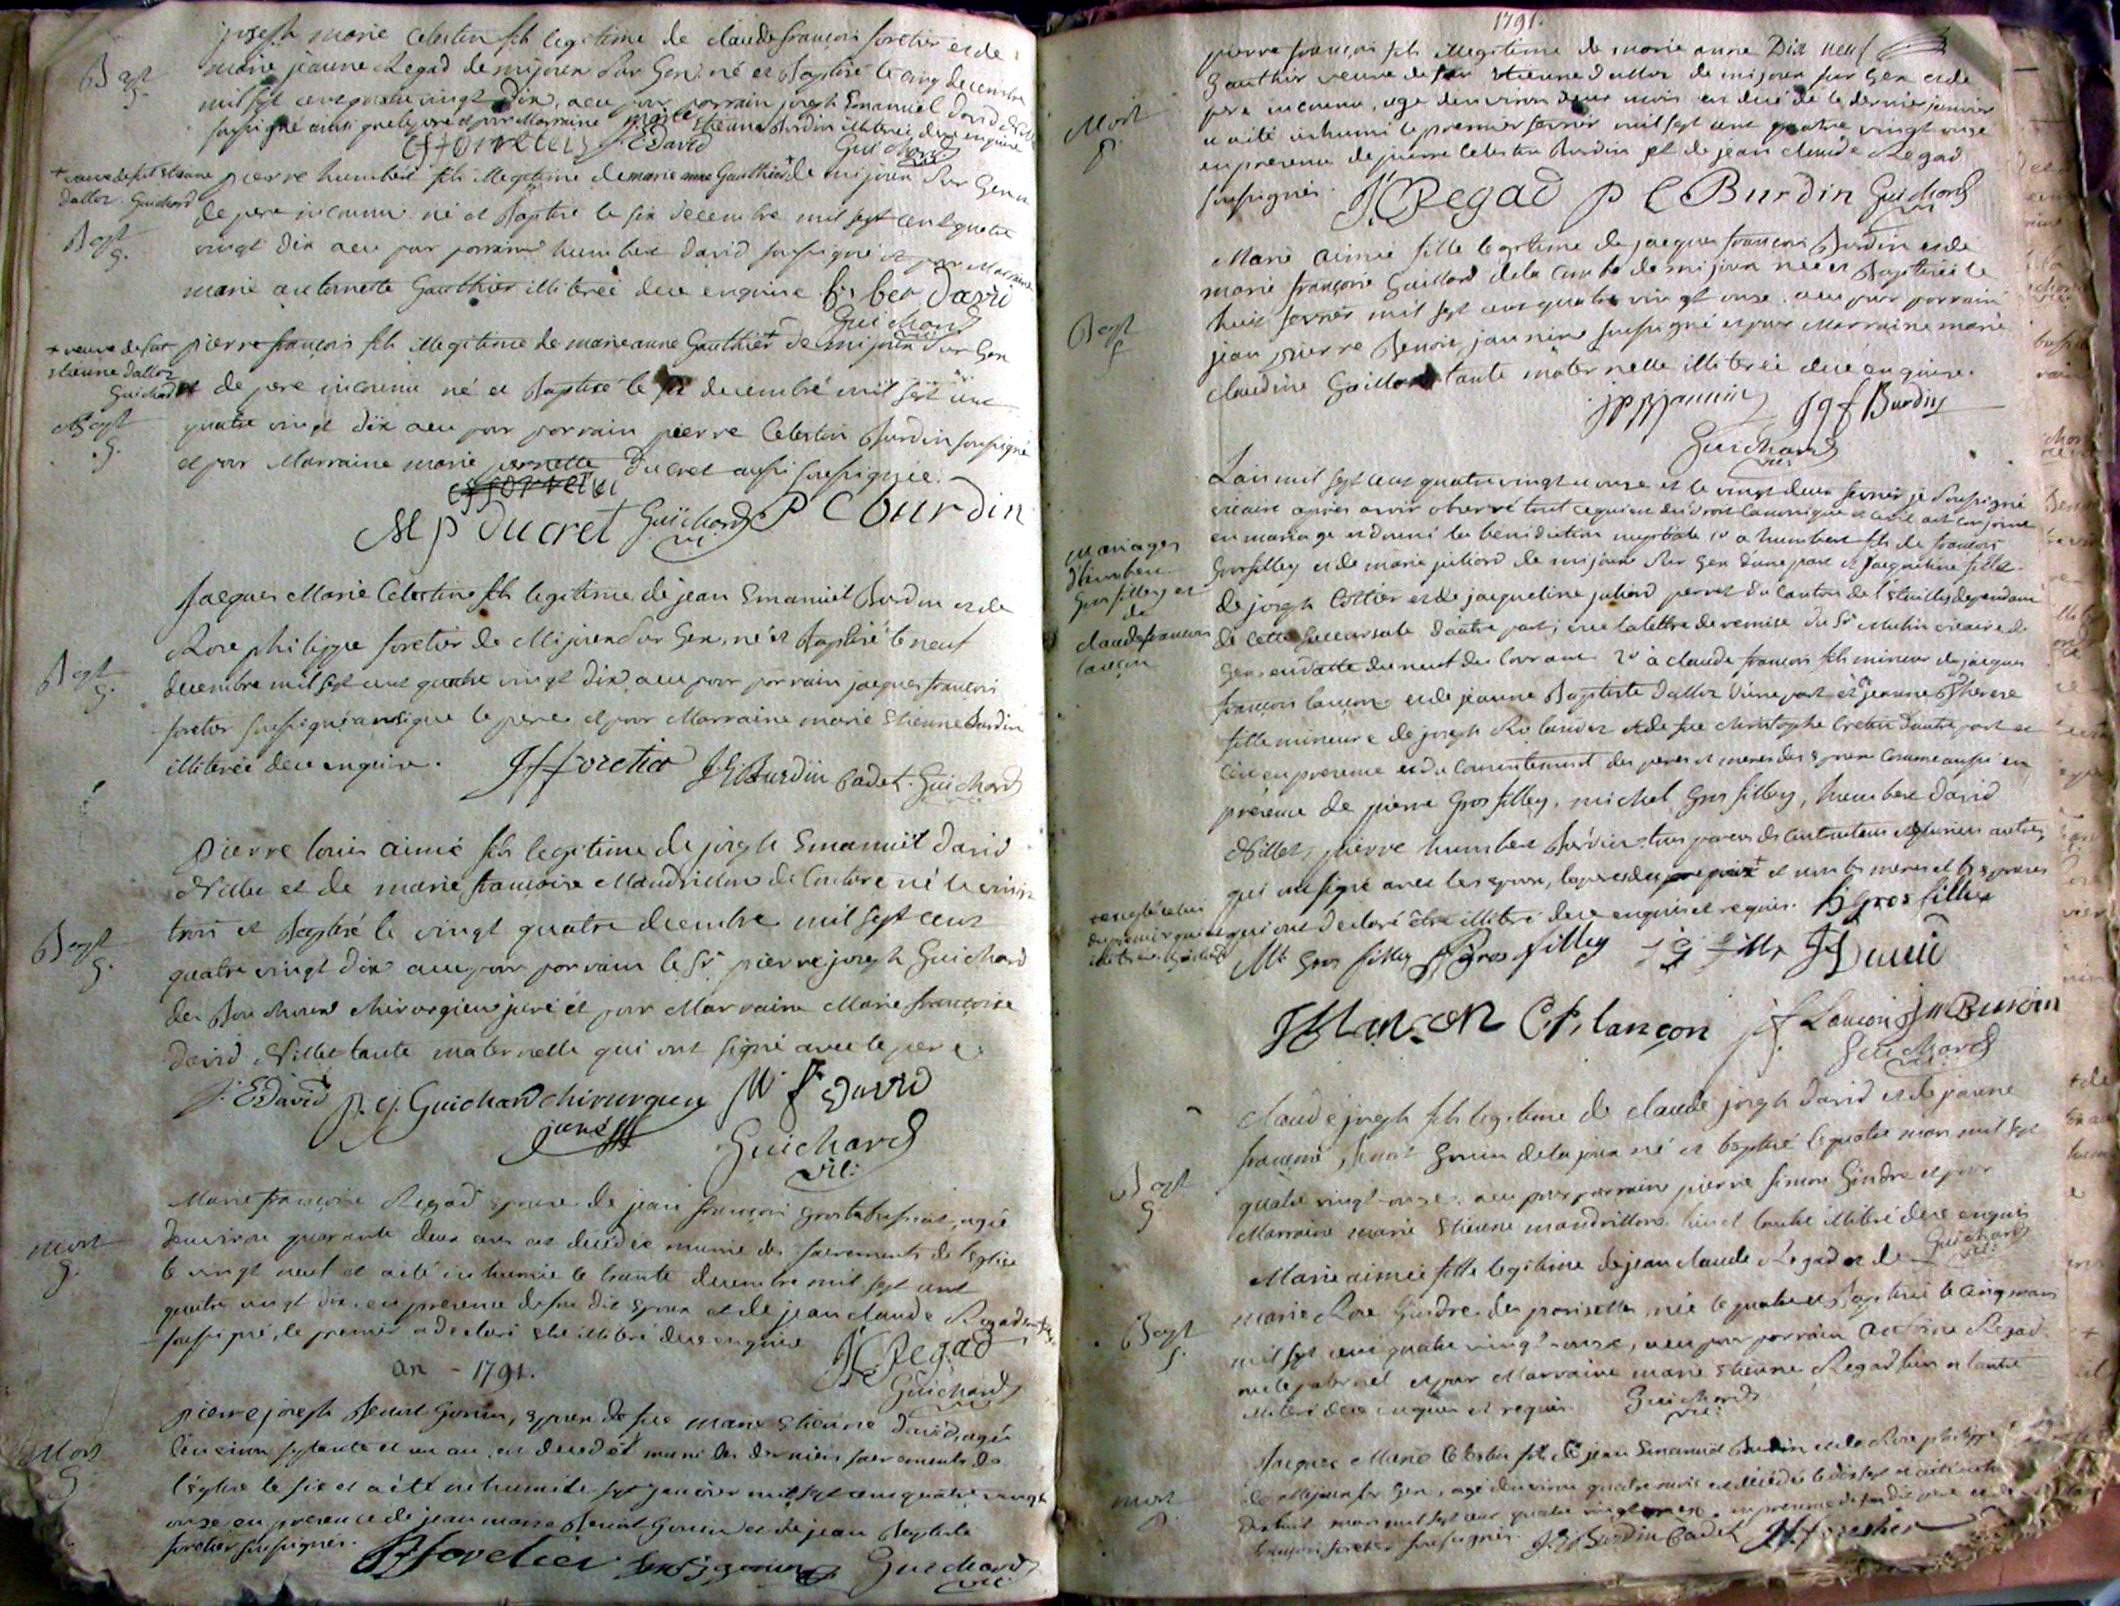 Bapt
G.
joseph marie Celestin fils legitime de claude françois foretier et de
marie jeanne Regad de mijoux sur Gex né et Baptisé le cinq decembre
mil sept cent quatre vingt dix, a eu pour parrain joseph Emanuel david
soussigné ainsi que le pere et pour Marraine marie Etienne Burdin illiterée dece enquise
cf foretier J E David Guichard
+ veuve de feu Etienne
dalloz. Guichard
Bapt
G.
pierre humbert fils illegitime de marie anne Gauthier + de mijoux sur Gex
de pere inconnu né et Baptisé le six decembre mil sept cent quatre
vingt dix a eu pour parrain humbert david soussigné et pour Marraine
marie antoinette Gauthier illiterée dece enquise hber david
Guichard
+ veuve de feu
etienne dalloz
Guichard
Bapt
G.
pierre françois fils illegitime de marie anne Gauthier + de mijoux sur Gex
et de pere inconnu né et Baptisé le six decembre mil sept cent
quatre vingt dix a eu pour parrain pierre Celestin Burdin soussigné
et pour Marraine marie pernette Ducret aussi soussignée.
M p Ducret Guichard vic: P C burdin
Bapt
G.
Jacques Marie Celestin fils legitime de jean Emanuel Burdin et de
Rose philippe foretier de Mijoux sur Gex, né et Baptisé le neuf
decembre mil sept cent quatre vingt dix a eu pour parrain jacques françois
foretier soussigné ainsi que le pere et pour Marraine marie Etienne Burdin
illiterée dece enquise. J f foretier J E Burdin Cadet. Guichard
Bapt
G.
pierre louis aimé fils legitime de joseph Emanuel david
Nillet et de marie françoise Mandrillon de la Cuture né le vingt
trois et Baptisé le vingt quatre decembre mil sept cent
quatre vingt dix a eu pour parrain le Sr pierre joseph Guichard
des Bouchoux chirurgien juré et pour Marraine Marie françoise
David Nillet tante maternelle qui ont signé avec le pere.
J. E David p. j. Guichard chirurgien M f David
juré Guichard
vic:
mort
G.
Marie françoise Regad epouse de jean françois grosteabussiat, agée
denviron quarante deux ans est decédée munie des sacrements de l'Eglise
le vingt neuf et a été inhumée le trente decembre mil sept cent
quatre vingt dix en presence de son dit epoux et de jean claude Regad
soussigné, le premier a declaré etre illiteré dece enquis J C Regad
an - 1791. Guichard
Mort
G
pierre joseph Benoit Gonin, epoux de feue marie Etienne david, agé
denviron septante et un an, est decedé muni des derniers sacrements de
l'église le six et a été inhumé le sept janvier mil sept cent quatre vingt
onze en presence de jean marie Benoit Gonin et de jean Baptiste
foretier soussignés. JB foretier Guichard
vic:
1791.
Dix neuf
Mort
G.
pierre françois fils illegitime de marie anne
Gauthier veuve de feu Etienne dalloz de mijoux sur Gex et de
pere inconnu, agé denviron deux mois est decédé le dernier janvier
a été inhumé le premier fevrier mil sept cent quatre vingt onze
en presence de pierre Celestin Burdin et de jean claude Regad
soussignés. JC Regad P C Burdin Guichard
Bapt
G
Marie aimée fille legitime de jacques françois Burdin et de
marie françoise Gaillard de la Combe de mijoux née et Baptisée le
huit fevrier mil sept cent quatre vingt onze. a eu pour parrain
jean pierre Benoit jannin soussigné et pour Marraine marie
claudine Gaillard tante maternelle illiterée dece enquise.
jp B jannin J f Burdin
Guichard
vic:
mariages
d'humbert
Grosfilley et
de
claude francois
lançon
L'an mil sept cent quatre vingt onze et le vingt deux fevrier je soussigné
vicaire apres avoir observé tout ce qui est de droit canonique et civil ait conjoint
en mariage et donné la benediction nuptiale 1° a humbert fils de françois
Grosfilley et de marie juliard de mijoux sur Gex d'une part et jacqueline fille
de joseph Cottier et de jacqueline juliard perret du canton de l'Etuilles dependant
de cette succursale d'autre part; vue la lettre de remise du Sr Mathin vicaire de
Gex, en datte du neuf du courant 2° à claude françois fils mineur de jacques
françois lançon et de jeanne Baptiste dalloz d'une part et jeanne Therese
fille mineure de joseph Rolandez et de feue christophe Cretin d'autre part et
ce en presence et du consentement des peres et meres des epoux comme aussi en
présence de pierre Grosfilley, michel Grosfilley, humbert david
Nillet, pierre humbert Burdin tous parens des contractans et plusieurs autres,
qui ont signé avec les epoux, les peres des epoux + et non les meres et les epouses
qui ont declaré être illiteré dece enquis et requis. h gros fillex
+ excepté celui
du premier qui est
illiteré. Guichard
Ml Gros filley p Gros filley J g fille h David
JB lançon C.f. lançon jf Lançon J M Burdin
Guichard
Bapt
G.
claude joseph fils legitime de claude joseph david et de jeanne
françoise, Benoit Gonin de la joux né et baptisé le quatre mars mil sept
quatre vingt-onze. a eu pour parrain pierre simon Gindre et pour
Marraine marie Etienne mandrillon lun et lautre illiteré dece enquis
Guichard
vic:
Bapt
G.
Marie aimée fille legitime de jean claude Regad et de
marie Rose Gindre des parisettes, née le quatre et Baptisée le cinq mars
mil sept cent quatre vingt-onze, a eu pour parrain Antoine Regad
oncle paternel et pour Marraine marie Etienne Regad lun et lautre
illiteré dece enquis et requis. Guichard
vic:
mort
G.
Jacques Marie Celestin fils de jean Emanuel Burdin et de Rose philippe
de Mijoux sur Gex, agé denviron quatre mois est decédé le dix sept et a été
dix huit mars mil sept cent quatre vingt onze, en presence de son dit pere et de
françois foretier soussignés. J E Burdin Cadet J f foretier